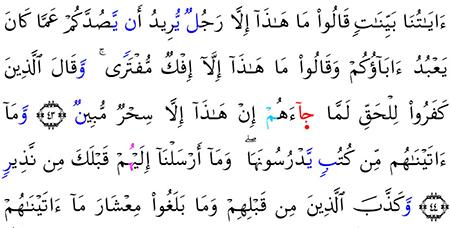 ءَايَٰتُنَا بَيِّنَٰتٖ قَالُواْ مَا هَٰذَآ إِلَّا رَجُلٞ يُرِيدُ أَن يَصُدَّكُمۡ عَمَّا كَانَ
يَعۡبُدُ ءَابَآؤُكُمۡ وَقَالُواْ مَا هَٰذَآ إِلَّآ إِفۡكٞ مُّفۡتَرٗىۚ وَقَالَ ٱلَّذِينَ
كَفَرُواْ لِلۡحَقِّ لَمَّا جَآءَهُمۡ إِنۡ هَٰذَآ إِلَّا سِحۡرٞ مُّبِينٞ ﴿٤٣﴾ وَمَآ
ءَاتَيۡنَٰهُم مِّن كُتُبٖ يَدۡرُسُونَهَاۖ وَمَآ أَرۡسَلۡنَآ إِلَيۡهُمۡ قَبۡلَكَ مِن نَّذِيرٖ
﴿٤٤﴾ وَكَذَّبَ ٱلَّذِينَ مِن قَبۡلِهِمۡ وَمَا بَلَغُواْ مِعۡشَارَ مَآ ءَاتَيۡنَٰهُمۡ